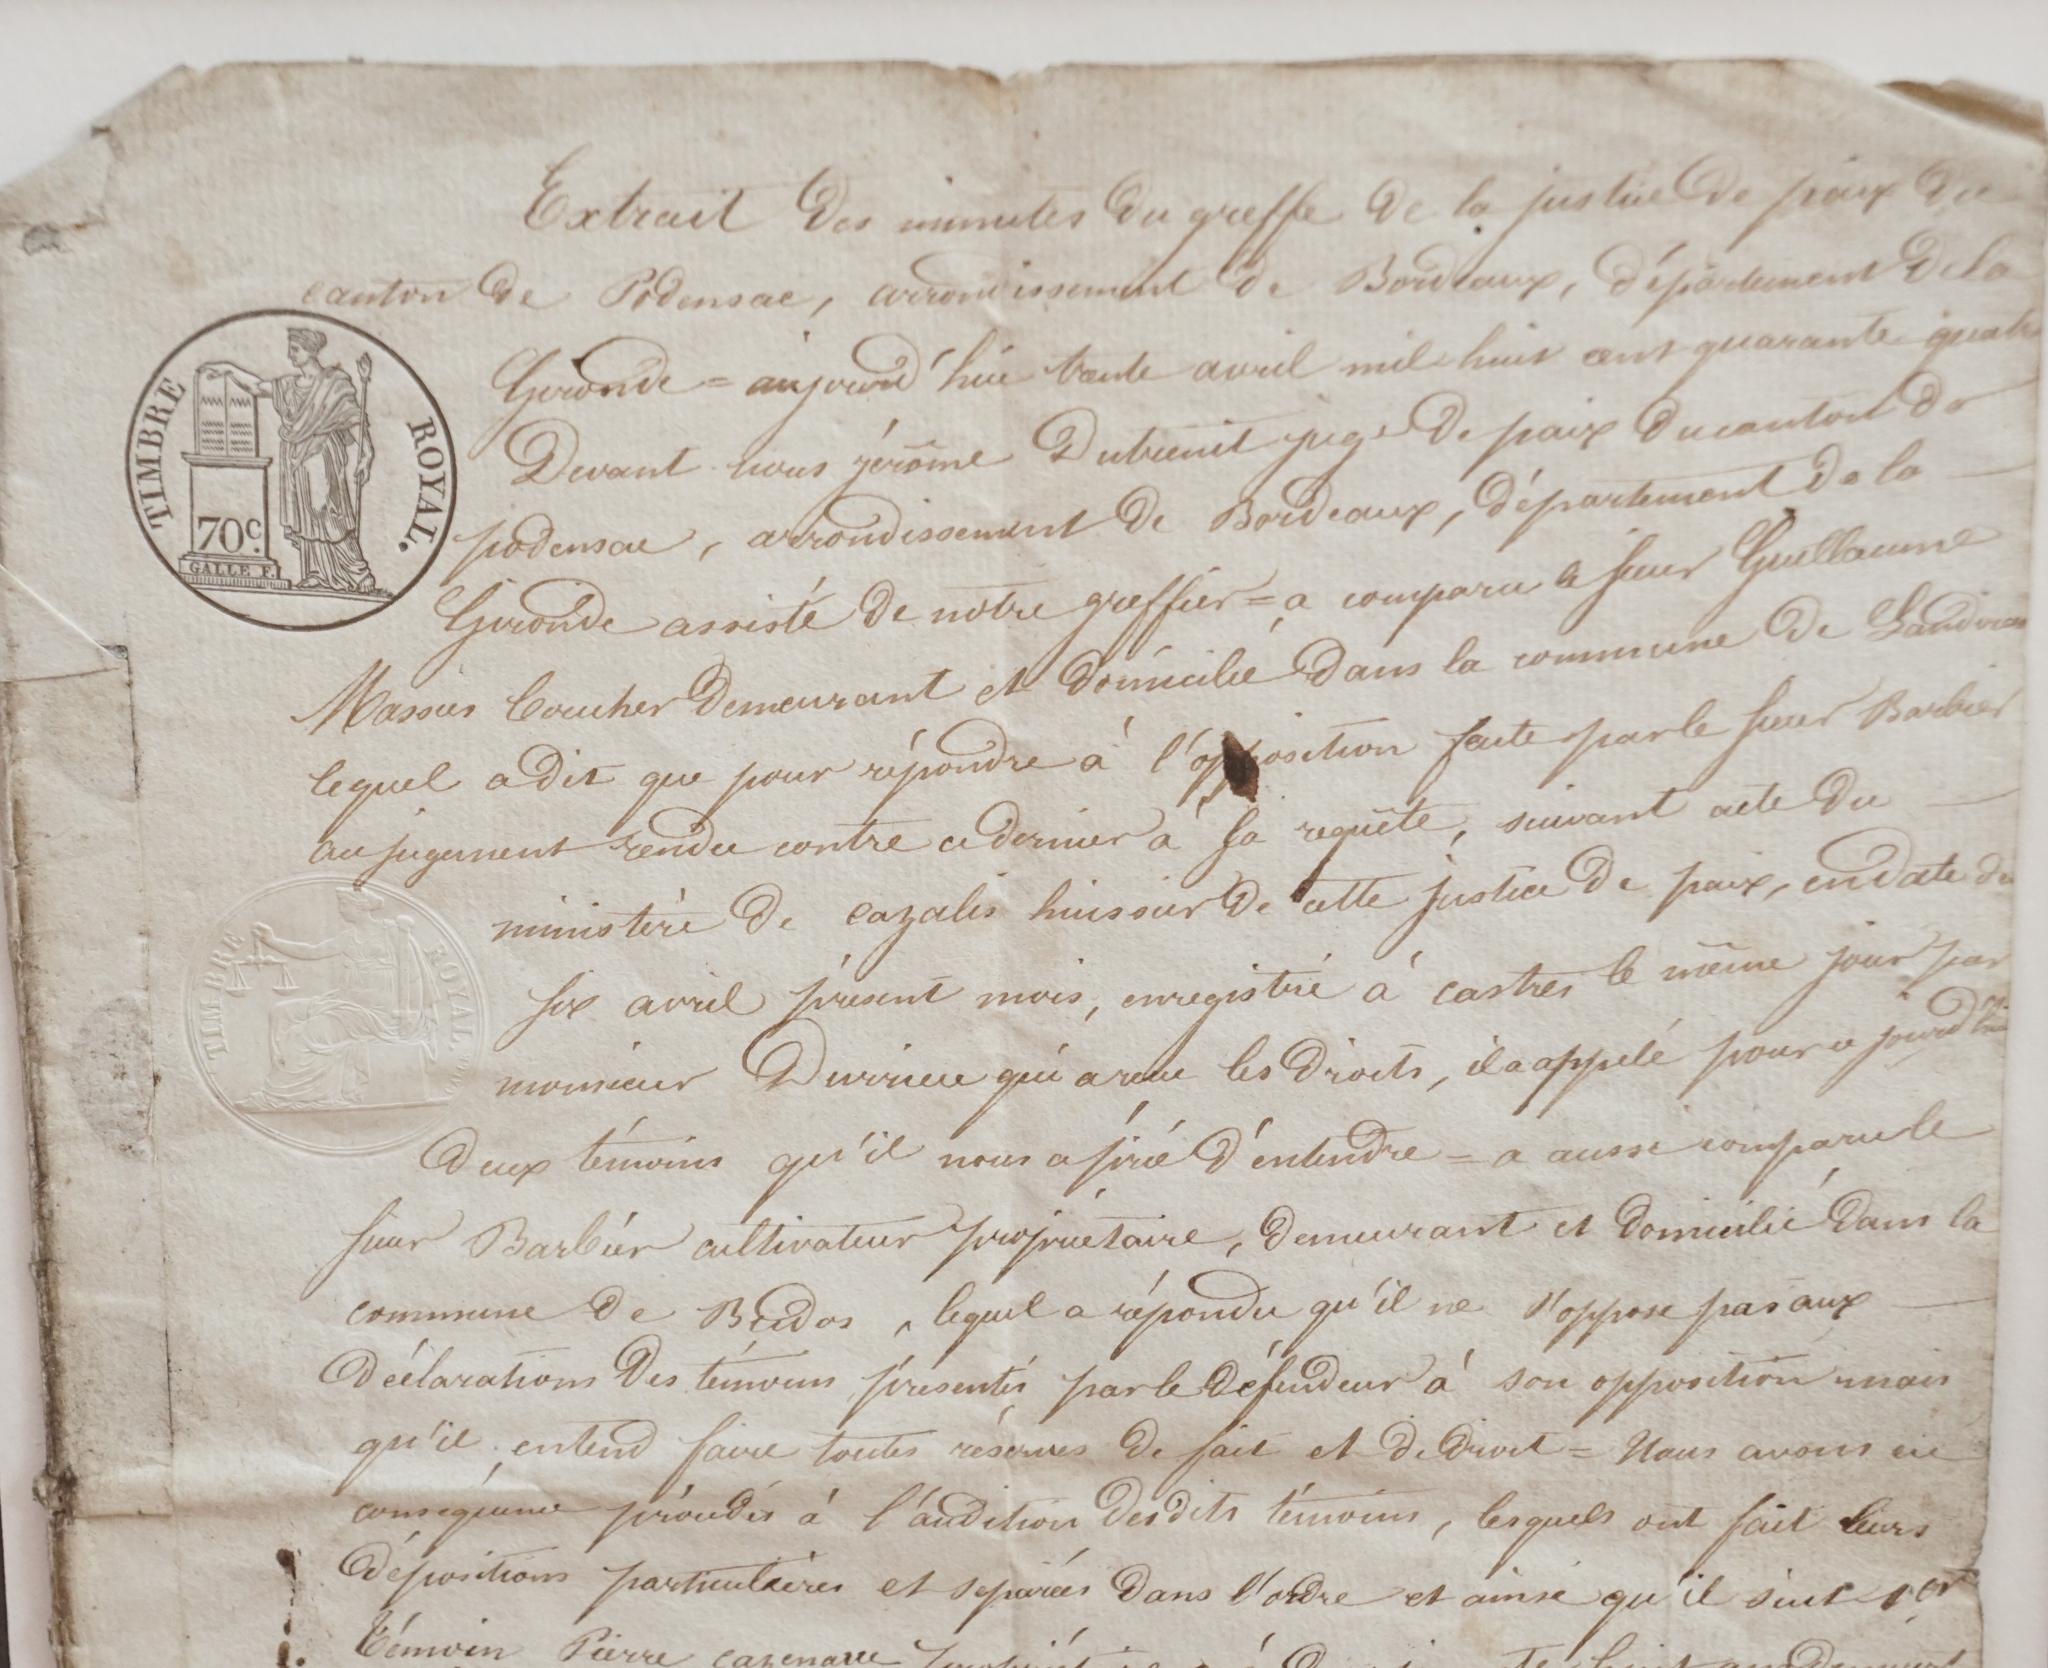 Extrait des minutes du greffe de la justice de paix du
canton de Podensac, arrondissement de Bordeaux, département de la
Gironde = aujourd'hui trente avril mil huit cent quarante quatre
Devant nous jérôme Dutrenit juge de paix du canton de
podensac, arrondissement de Bordeaux, département de la
Gironde assisté de notre greffier = a comparu le sieur Guillaume
Massies boucher demeurant et domicilié dans la commune de Landiras
lequel a dit que pour répondre à l'opposition faite par le sieur Barbier
au jugement rendu contre ce dernier à sa requête, suivant acte du
ministère de cazalis huissier de cette justice de paix, en date du
six avril présent mois, enregistré à castres le même jour par
monsieur Durrieu qui a reçu les droits, il a appelé pour ce jourd'hui
deux témoins qu'il nous a prié d'entendre = a aussi comparu le
sieur Barbier cultivateur propriétaire, demeurant et domicilié dans la
commune de Budos, lequel a répondu qu'il ne s'oppose pas aux
déclarations des témoins présentés par le défendeur à son opposition mais
qu'il entend faire toutes réserves de fait et de droit = Nous avons en
conséquence procédés à l'audition desdits témoins, lesquels ont fait leurs
dépositions particulières et séparées dans l'ordre et ainsi qu'il suit 1er
Témoin Pierre cazenave
TIMBRE ROYAL.
70c.
GALLE F.
TIMBRE ROYAL